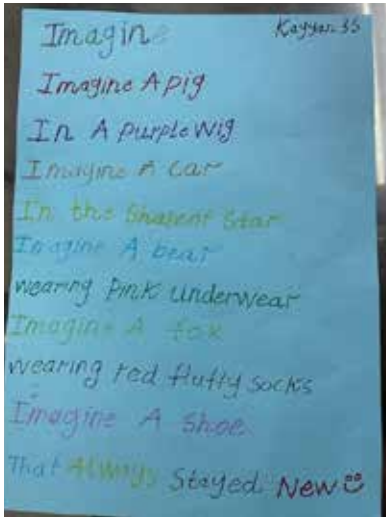 Imagine
Kayyan 3S
Imagine A pig
In A purple Wig
Imagine A car
In the Shape of Star
Imagine A bear
wearing pink underwear
Imagine A fox
wearing red fluffy socks
Imagine A shoe
That Always Stayed New